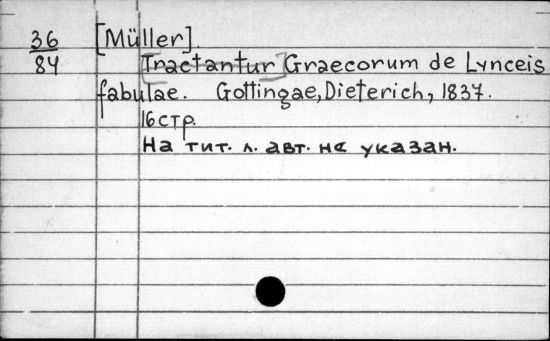 36 [Müller].
84 [Tractantur] Graecorum de Lynceis
fabulae. Gottingae, Dieterich, 1837.
16 стр.
На тит. л. авт. не указан.